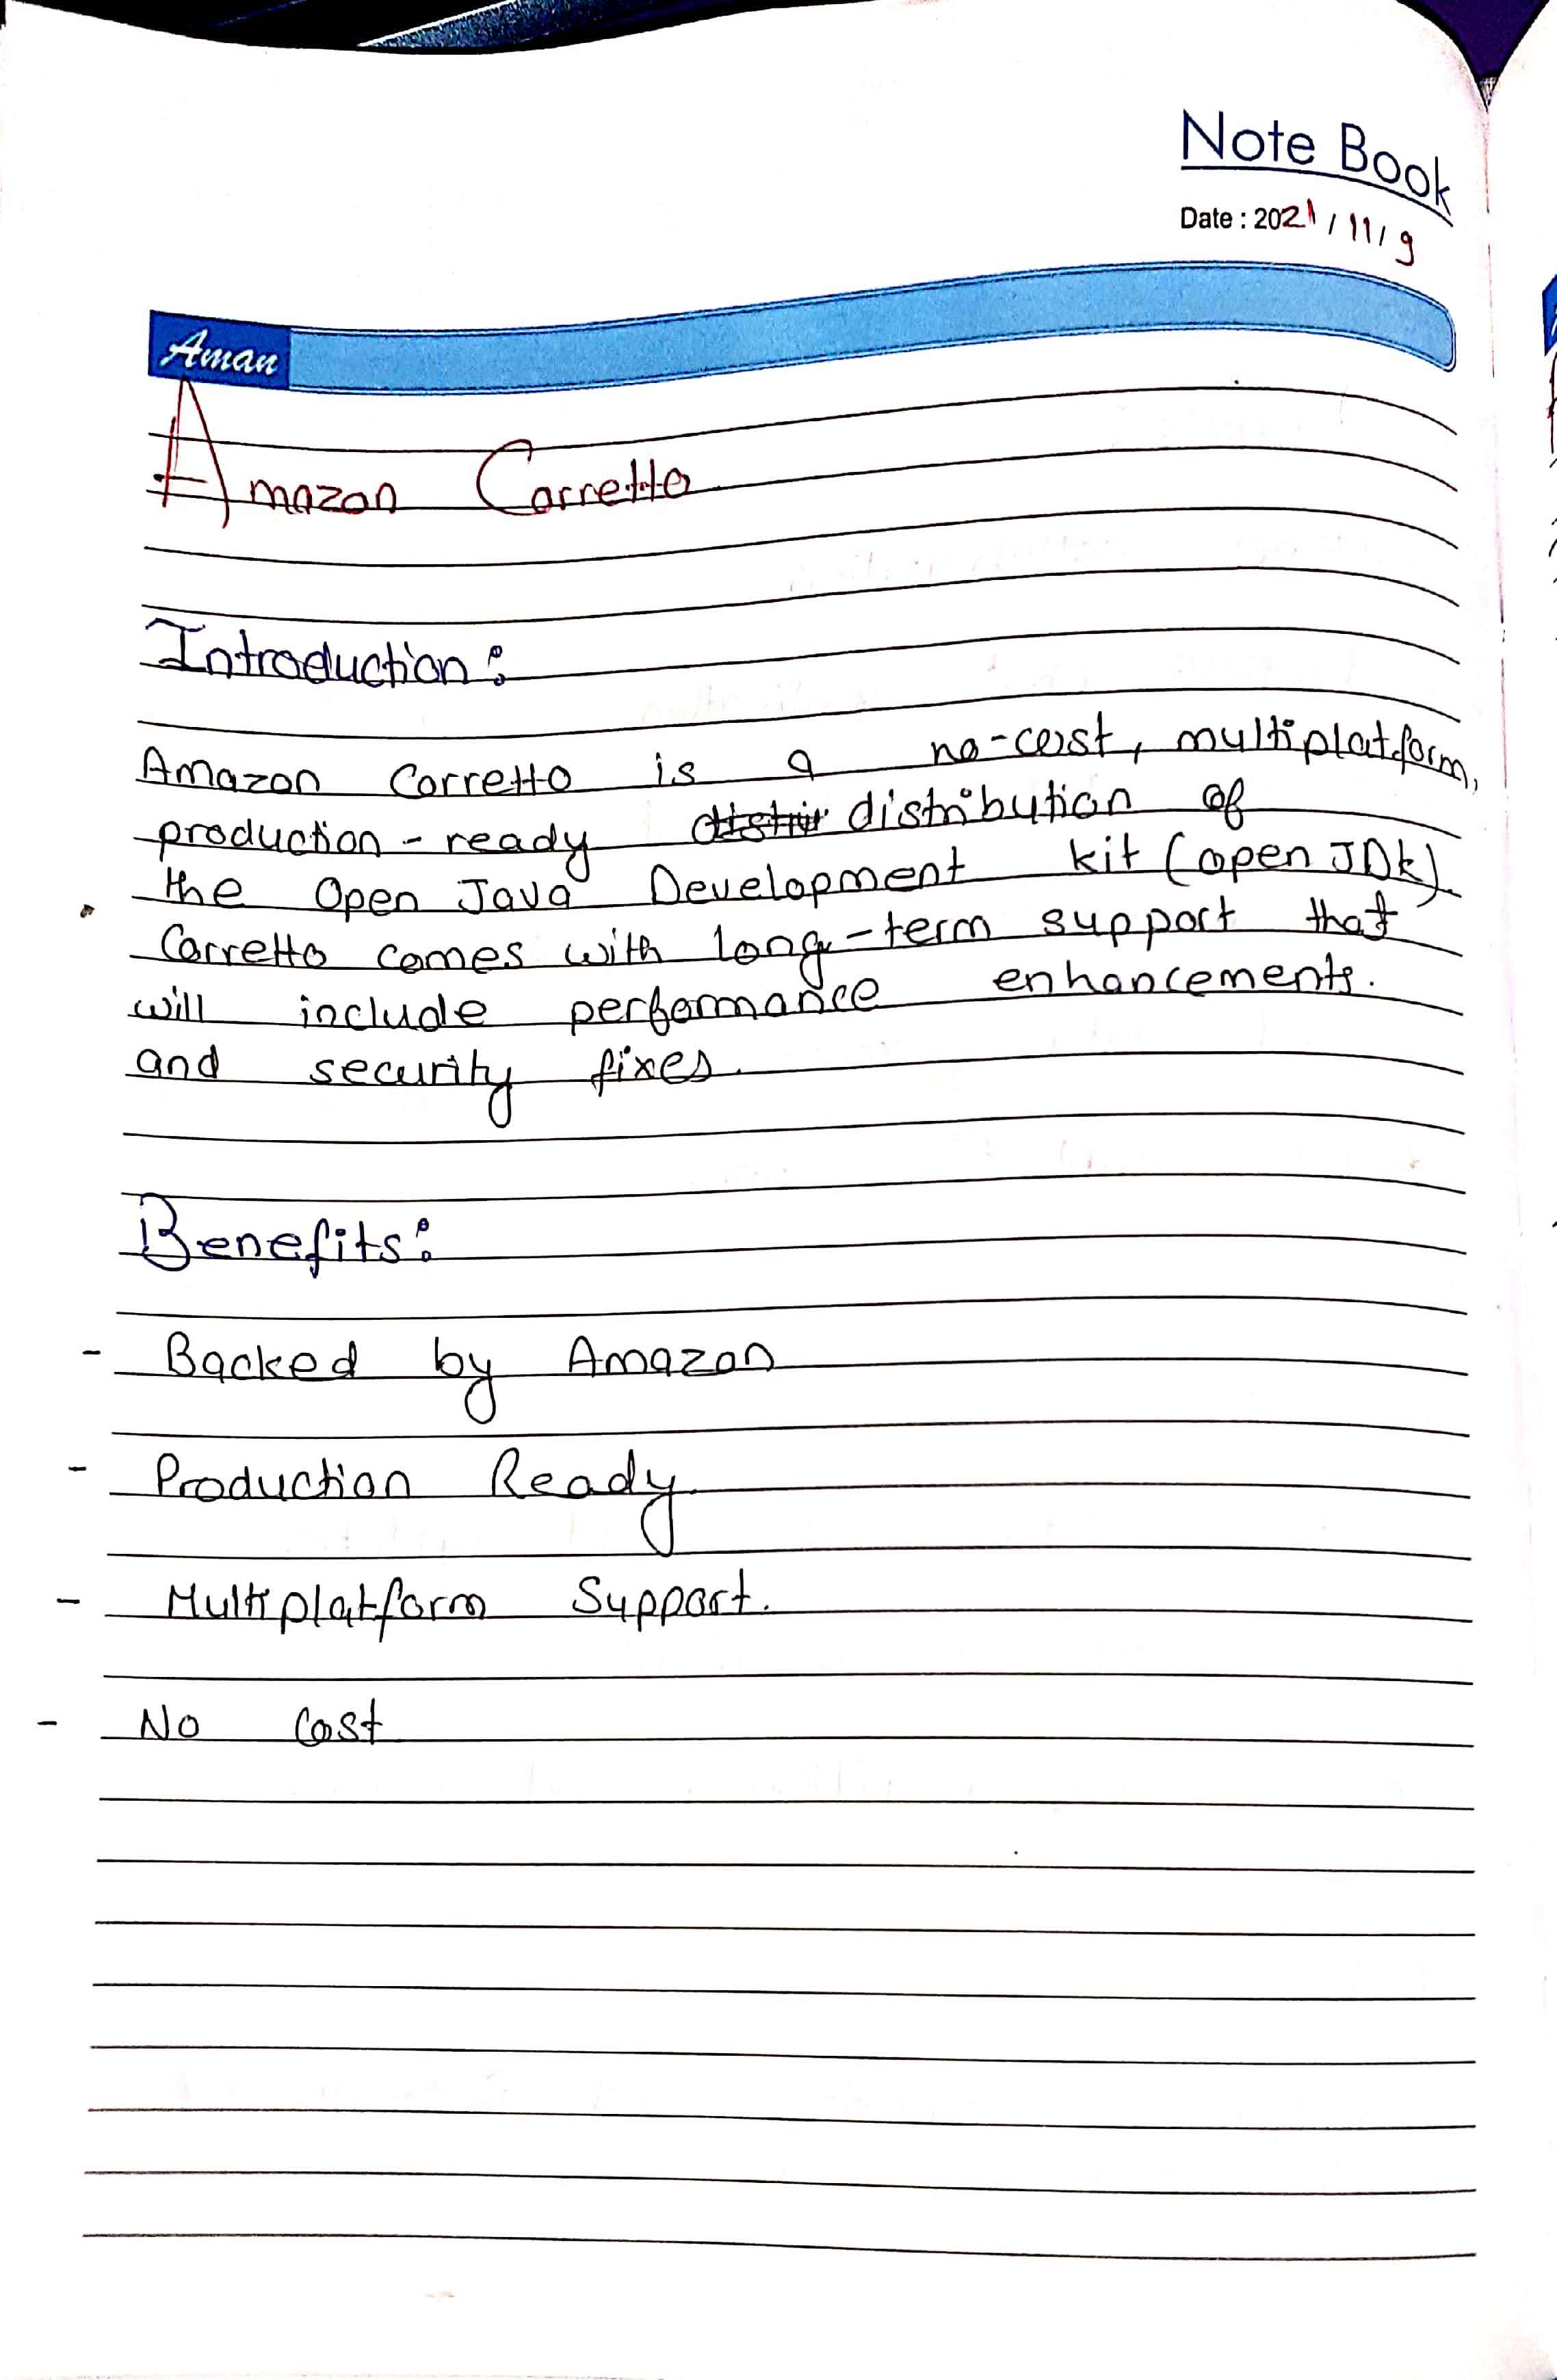 Note Book
Date : 2021 / 11 / 9
Aman
Amazon Corretto
Introduction:
Amazon Corretto is a no-cost, multiplatform,
production-ready distribution of
the Open Java Development kit (open JDK).
Corretto comes with long-term support that
will include performance enhancements.
and security fixes.
Benefits:
- Backed by Amazon
- Production Ready
- Multiplatform Support.
- No Cost